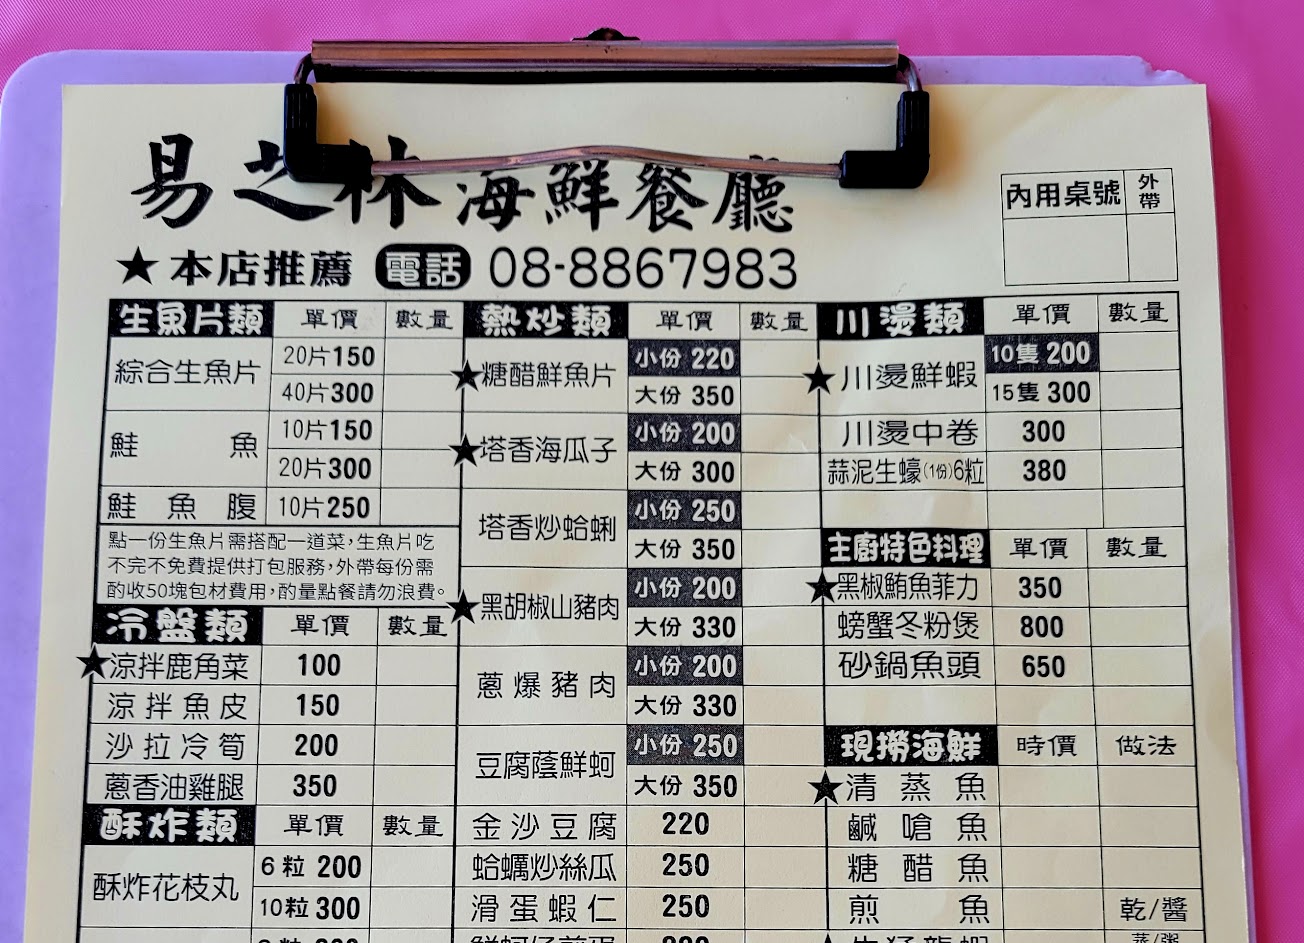 易芝林海鮮餐廳
內用桌號 外帶
★本店推薦 電話 08-8867983
生魚片類 單價 數量
綜合生魚片 20片150
40片300
鮭魚 10片150
20片300
鮭魚腹 10片250
點一份生魚片需搭配一道菜,生魚片吃
不完不免費提供打包服務,外帶每份需
酌收50塊包材費用,酌量點餐請勿浪費。
冷盤類 單價 數量
★涼拌鹿角菜 100
涼拌魚皮 150
沙拉冷筍 200
蔥香油雞腿 350
酥炸類 單價 數量
酥炸花枝丸 6粒200
10粒300
熱炒類 單價 數量
★糖醋鮮魚片 小份220
大份350
★塔香海瓜子 小份200
大份300
塔香炒蛤蜊 小份250
大份350
★黑胡椒山豬肉 小份200
大份330
蔥爆豬肉 小份200
大份330
豆腐蔭鮮蚵 小份250
大份350
金沙豆腐 220
蛤蠣炒絲瓜 250
滑蛋蝦仁 250
川燙類 單價 數量
★川燙鮮蝦 10隻200
15隻300
川燙中卷 300
蒜泥生蠔(1份)6粒 380
主廚特色料理 單價 數量
★黑椒鮪魚菲力 350
螃蟹冬粉煲 800
砂鍋魚頭 650
現撈海鮮 時價 做法
★清蒸魚
鹹嗆魚
糖醋魚
煎魚 乾/醬